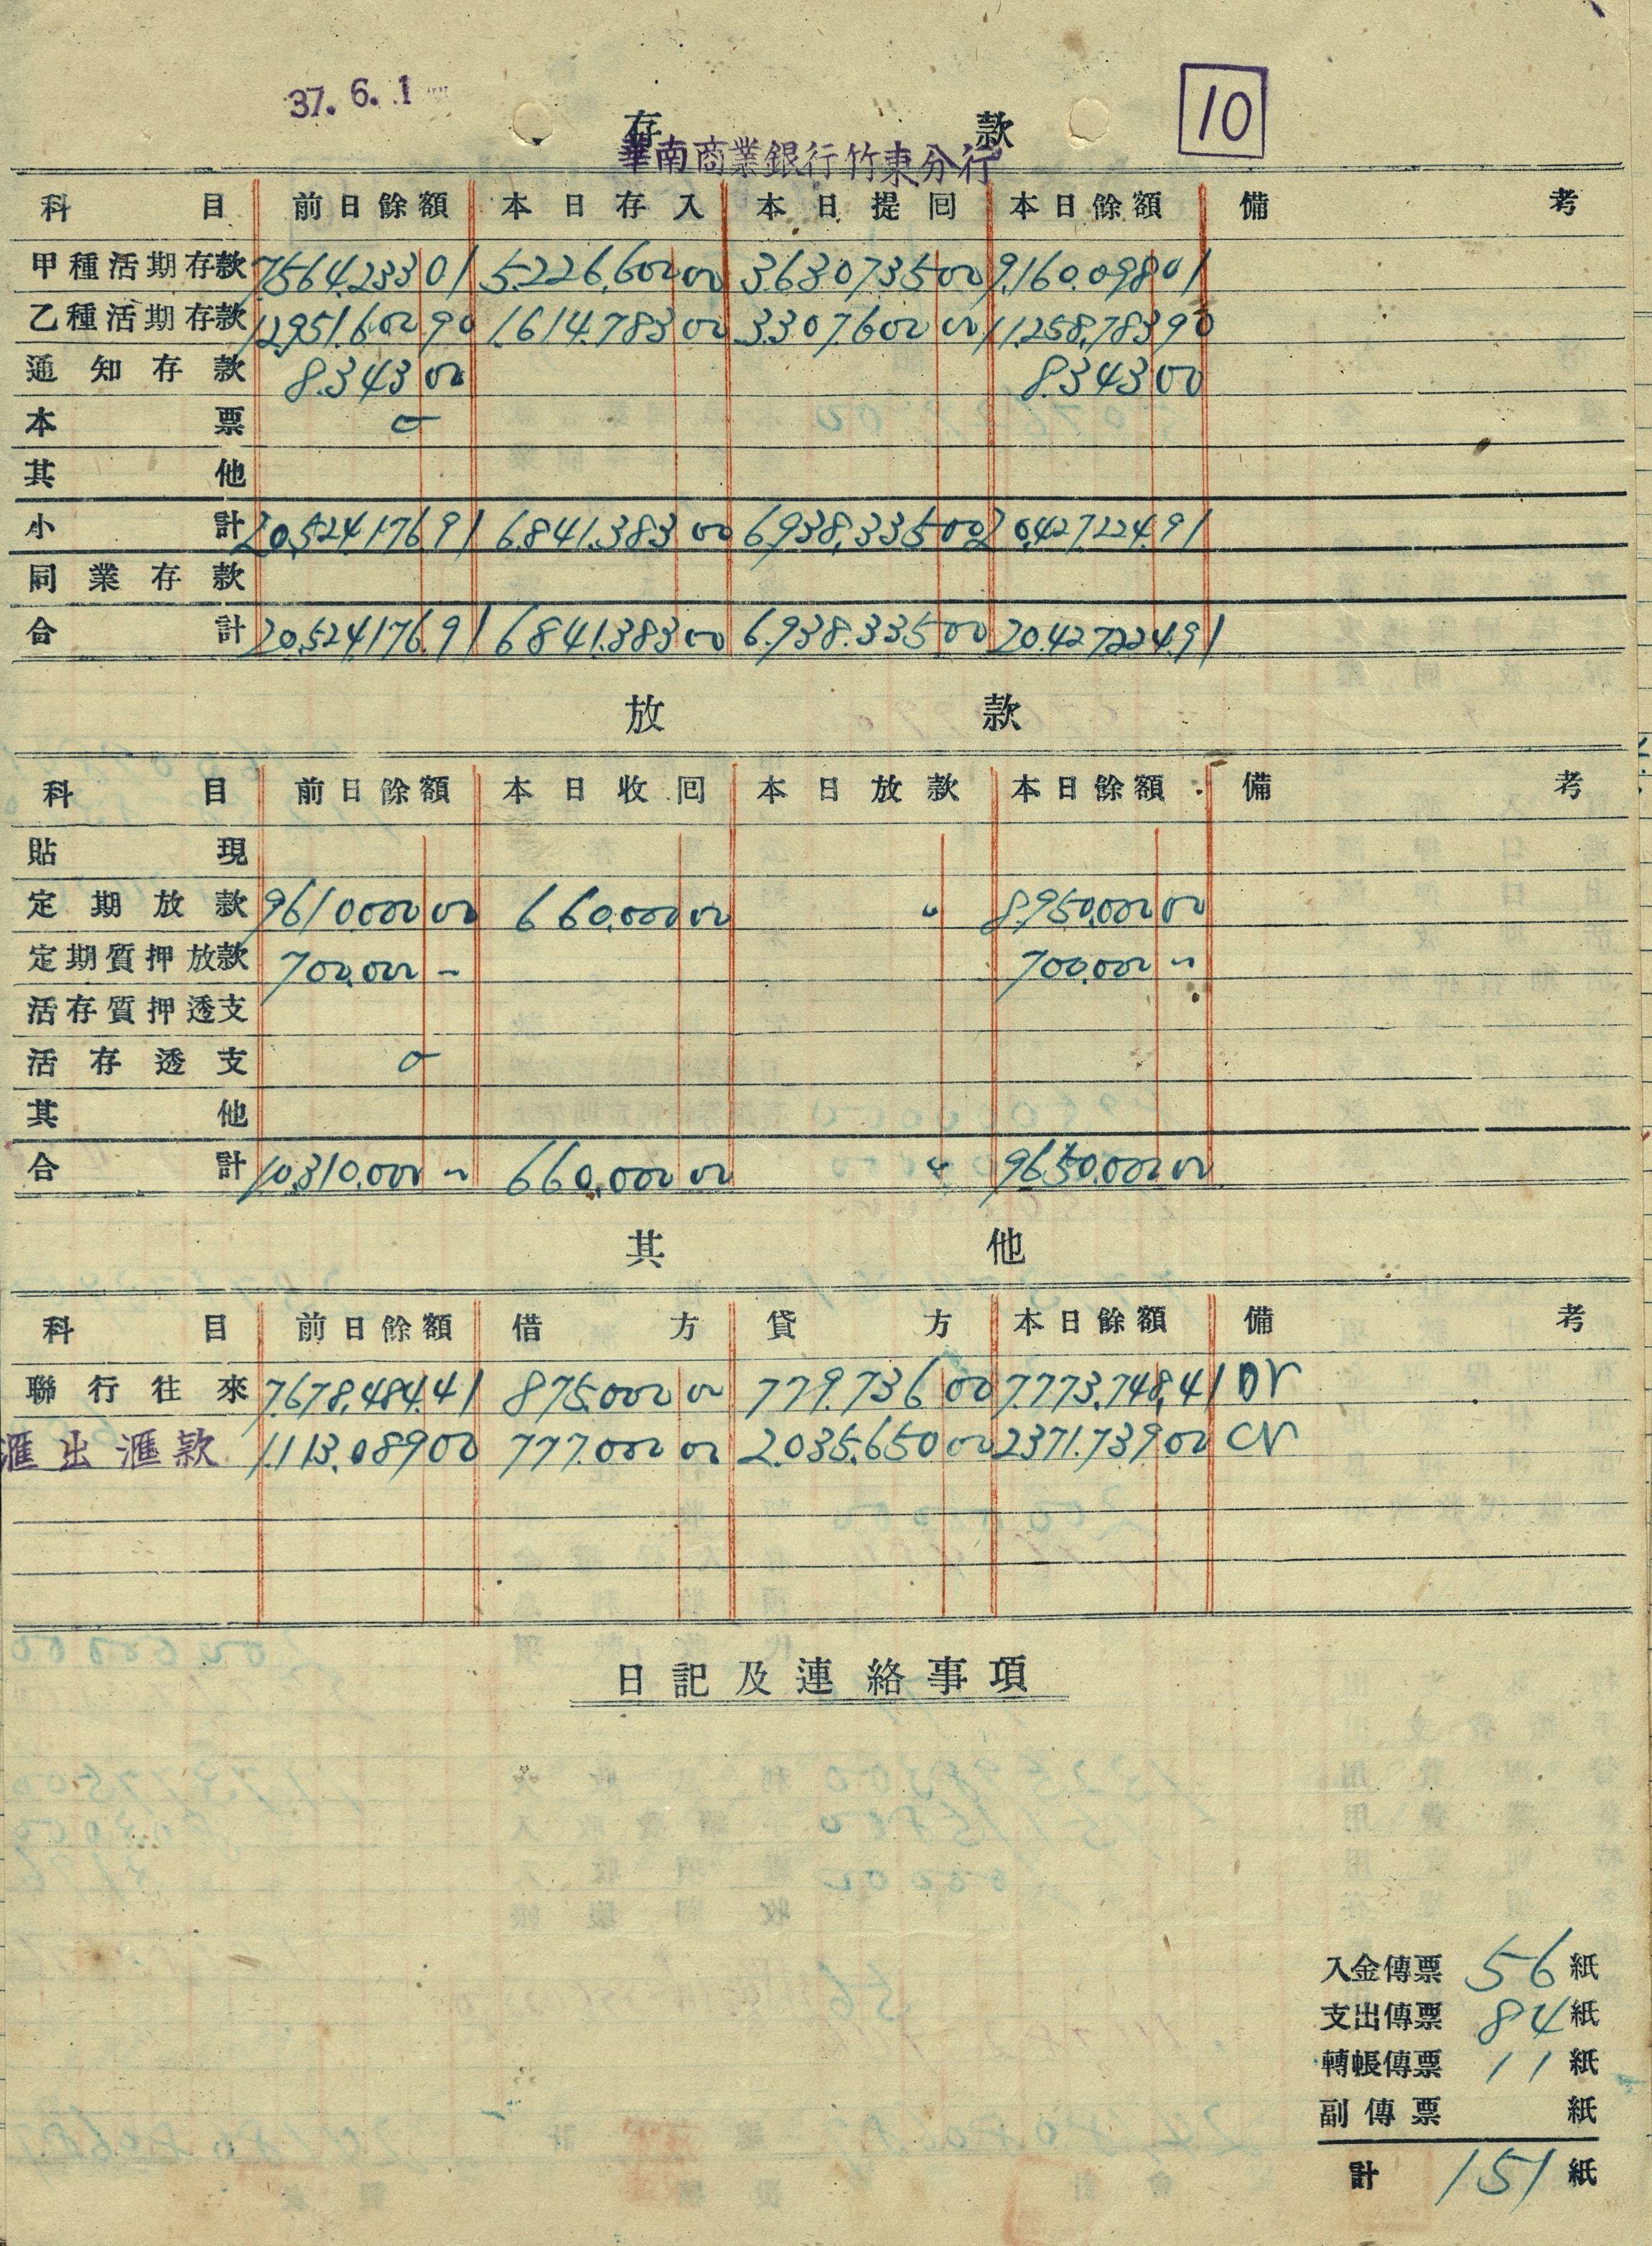 37. 6. 1
10
存 款
華南商業銀行竹東分行
科 目 前日餘額 本日存入 本日提回 本日餘額 備 考
甲種活期存款 7,564,233 01 5,226,600 00 3,630,735 00 9,160,098 01
乙種活期存款 12,951,600 90 1,614,783 00 3,307,600 00 11,258,783 90
通知存款 8,343 00 8,343 00
本票 0
其他
小計 20,524,176.91 6,841,383 00 6,938,335 00 20,427,224.91
同業存款
合計 20,524,176.91 6,841,383 00 6,938,335 00 20,427,224.91
放 款
科 目 前日餘額 本日收回 本日放款 本日餘額 備 考
貼現
定期放款 9,610,000 00 660,000 00 0 8,950,000 00
定期質押放款 700,000 - 700,000 -
活存質押透支
活存透支 0
其他
合計 10,310,000 - 660,000 00 0 9,650,000 00
其 他
科 目 前日餘額 借方 貸方 本日餘額 備 考
聯行往來 7,678,484.41 875,000 00 779,736 00 7,773,748.41 Dr
滙出滙款 1,113,089 00 777,000 00 2,035,650 00 2,371,739 00 Cr
日記及連絡事項
入金傳票 56 紙
支出傳票 84 紙
轉帳傳票 11 紙
副傳票 紙
計 151 紙